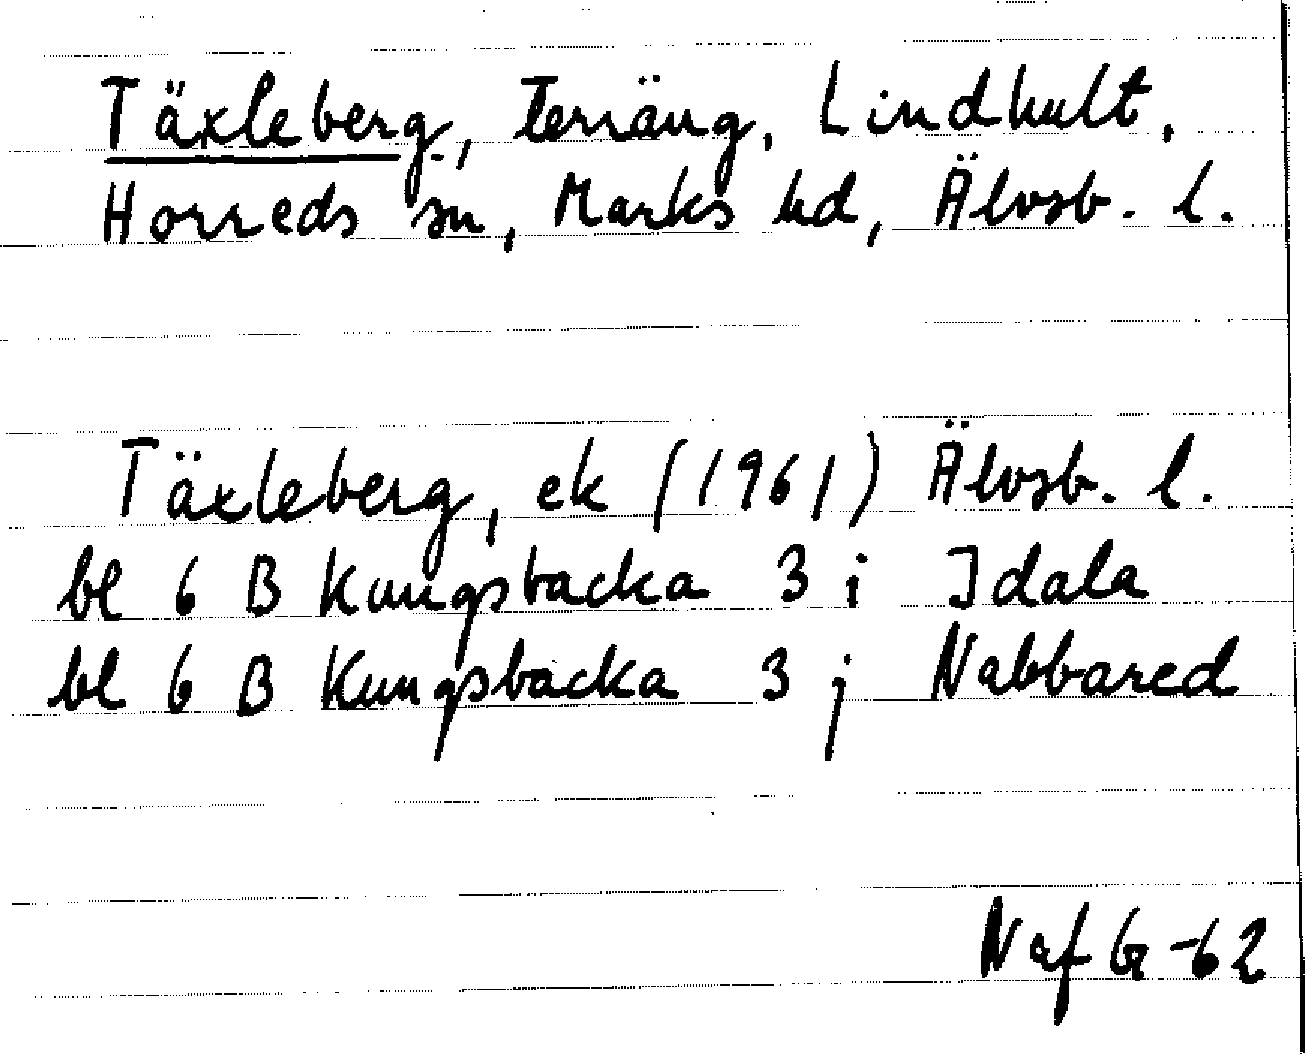 Täxleberg, terräng, Lindhult,
Horreds sn, Marks hd, Älvsb. l.
Täxleberg, ek (1961) Älvsb. l.
bl 6 B Kungsbacka 3 i Idala
bl 6 B Kungsbacka 3 j Nabbared
Naf G -62